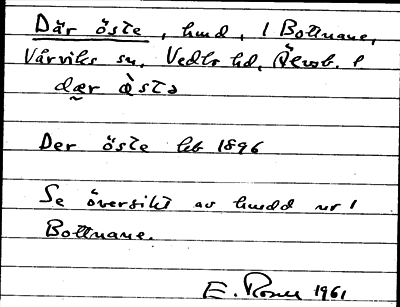 Där öste, hmd, i Bottnane,
Vårviks sn, Vedbo hd, Älvsb. l
dær östə
Der öste kb 1896
Se översikt av hmdd nr 1
Bottnane.
E. Rosén 1961